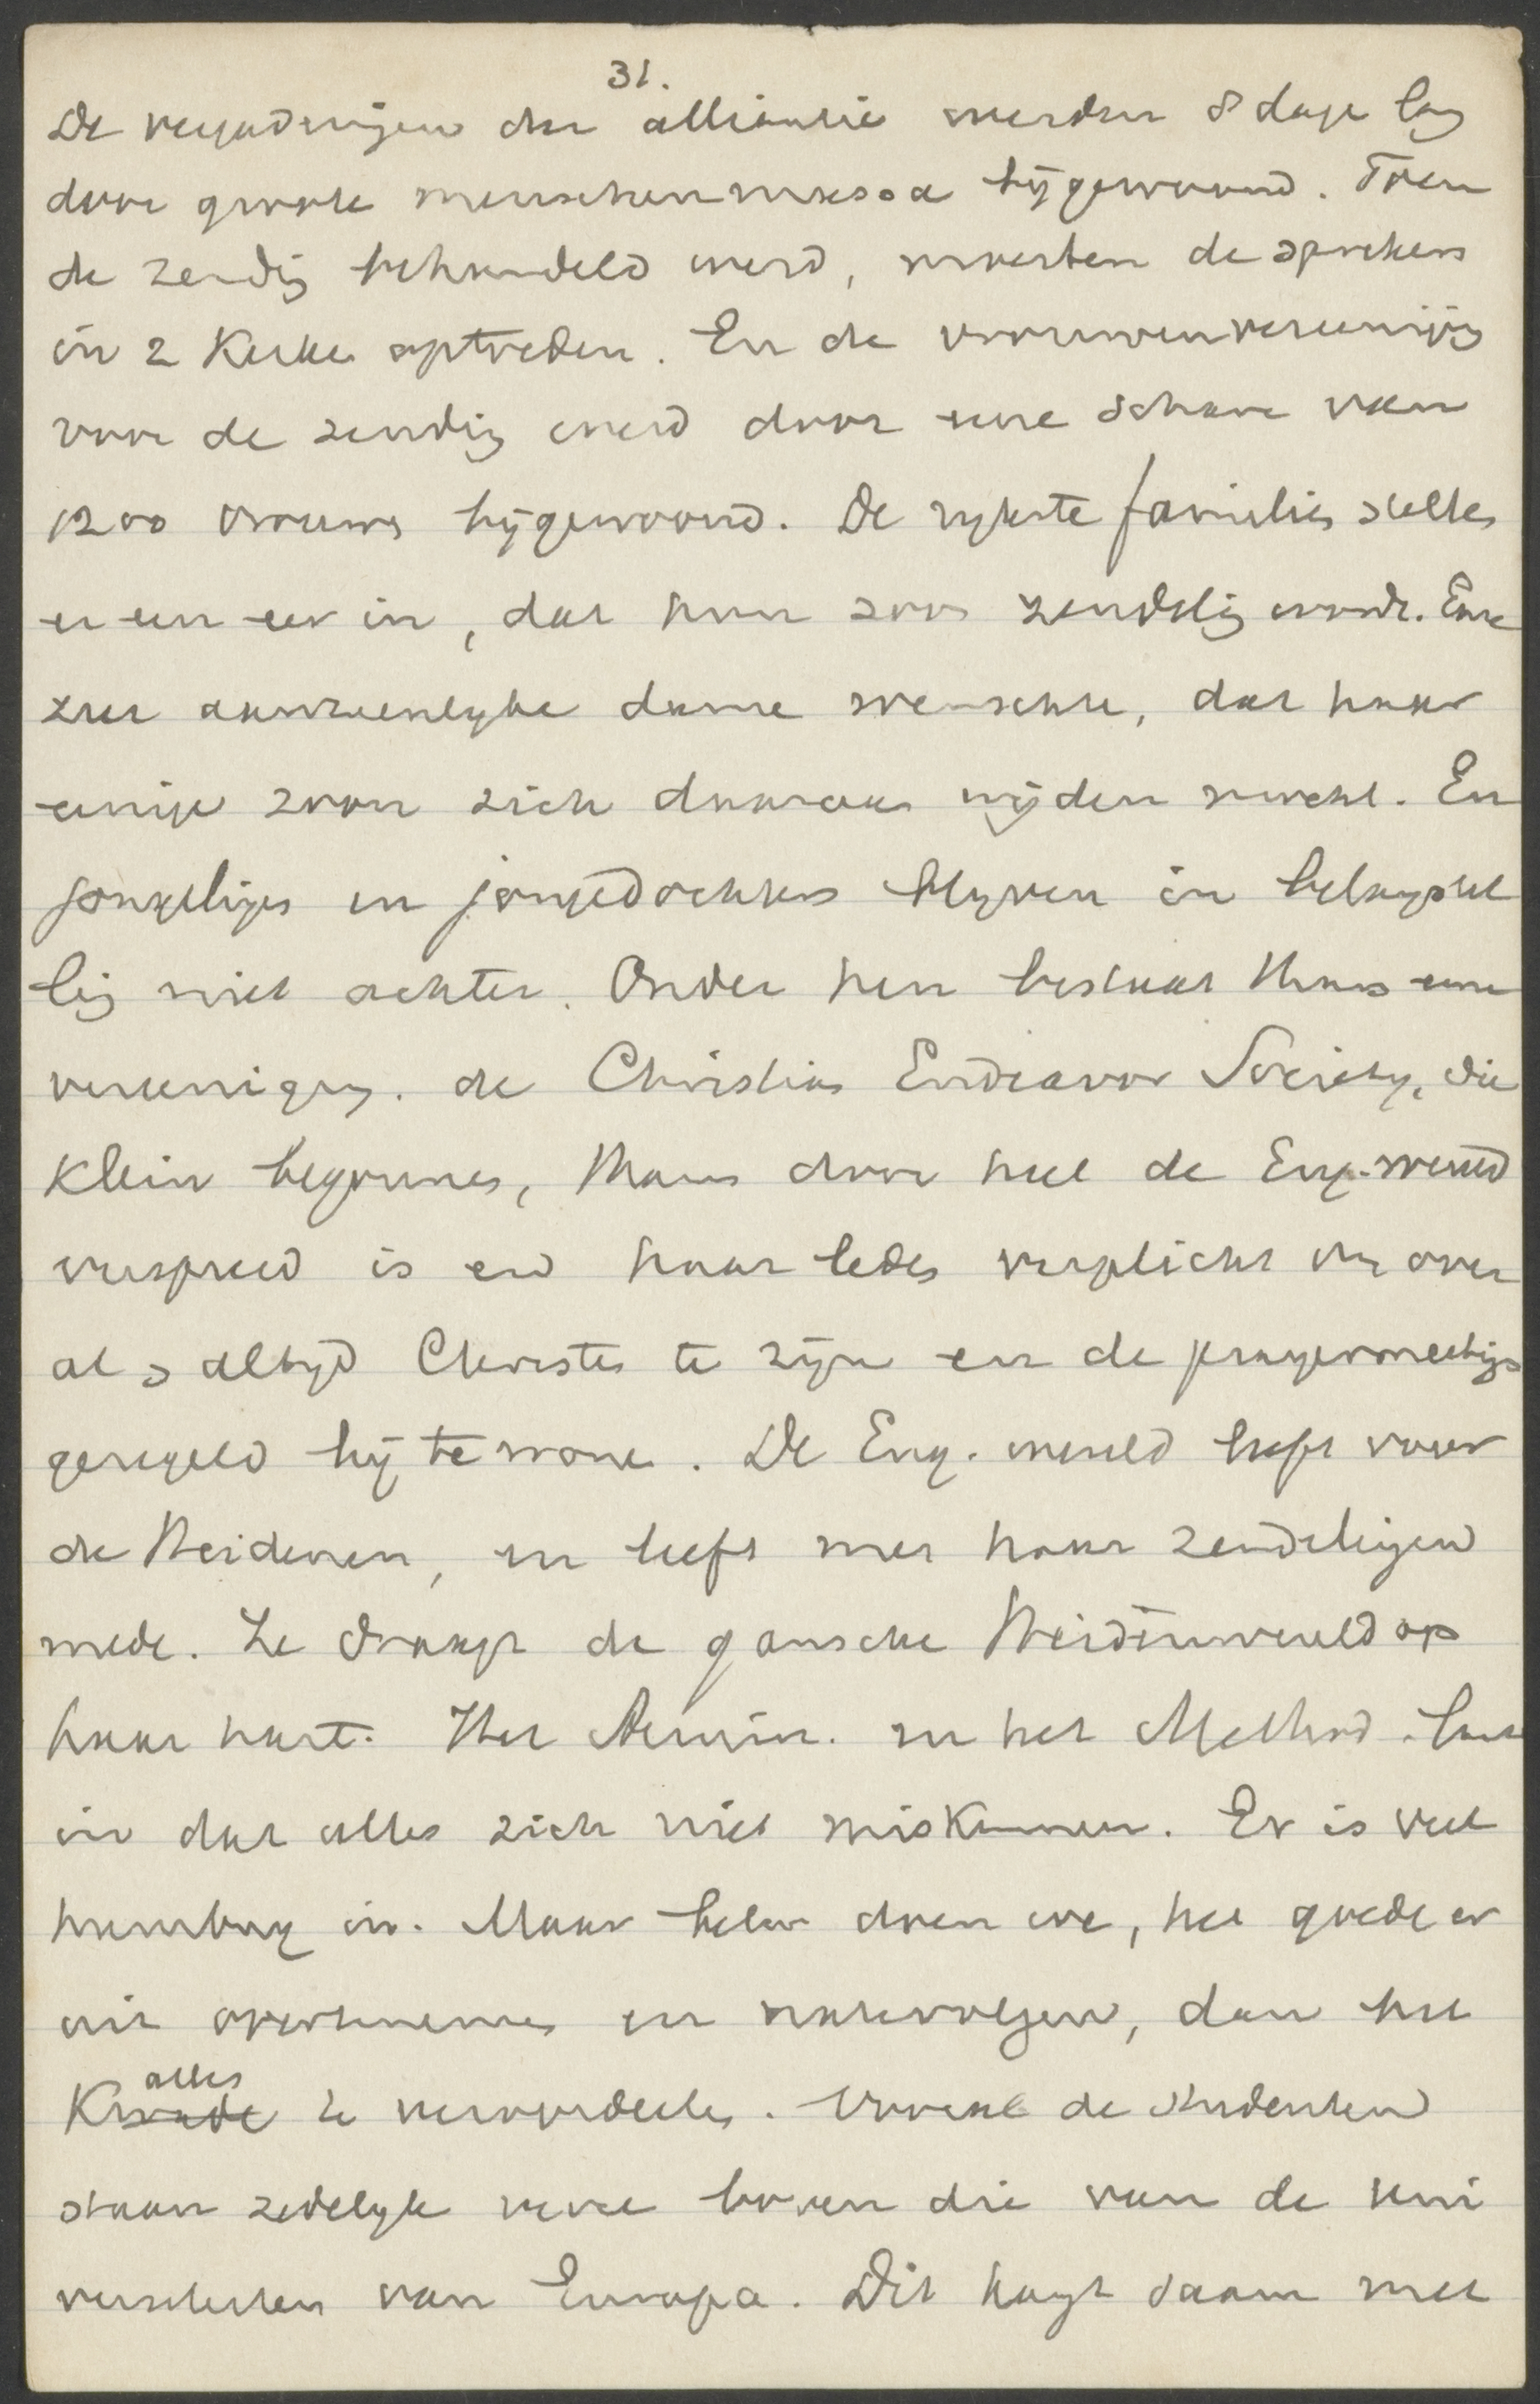 31.
De vergaderingen der alliantie werden 8 dage lang
door groote menschenmassa bijgewoond. Toen
de zending behandeld werd, moesten de sprekers
in 2 Kerken optreden. En de vrouwenvereeniging
voor de zending werd door eene schare van
1200 vrouwen bijgewoond. De rykste families stellen
er een eer in, dat hun zoon zendeling wordt. Eene
zeer aanzienlyke dame wenschte, dat haar
eenige zoon zich daaraan wijden mocht. En
jongelingen en jongedochters blyven in belangstel
ling niet achter. Onder hen bestaat thans eene
vereeniging. de Christian Endeavor Society, die
klein begonnen, thans door heel de Eng. wereld
verspreid is en haar leden verplicht om over
al & altyd Christen te zijn en de prayermeetings
geregeld bij te wonen. De Eng. wereld leeft voor
de Heidenen, en leeft met haar zendelingen
mede. Ze draagt de gansche Heidenwereld op
haar hart. Het Armin. en het Method. laat
in dat alles zich niet miskennen. Er is veel
humbug in. Maar beter doen we, het goede er
uit overtenemen en natevolgen, dan het
alles
Kwade te veroordeelen. Vooral de studenten
staan zedelyk verre boven die van de Uni
versiteiten van Europa. Dit hangt saam met